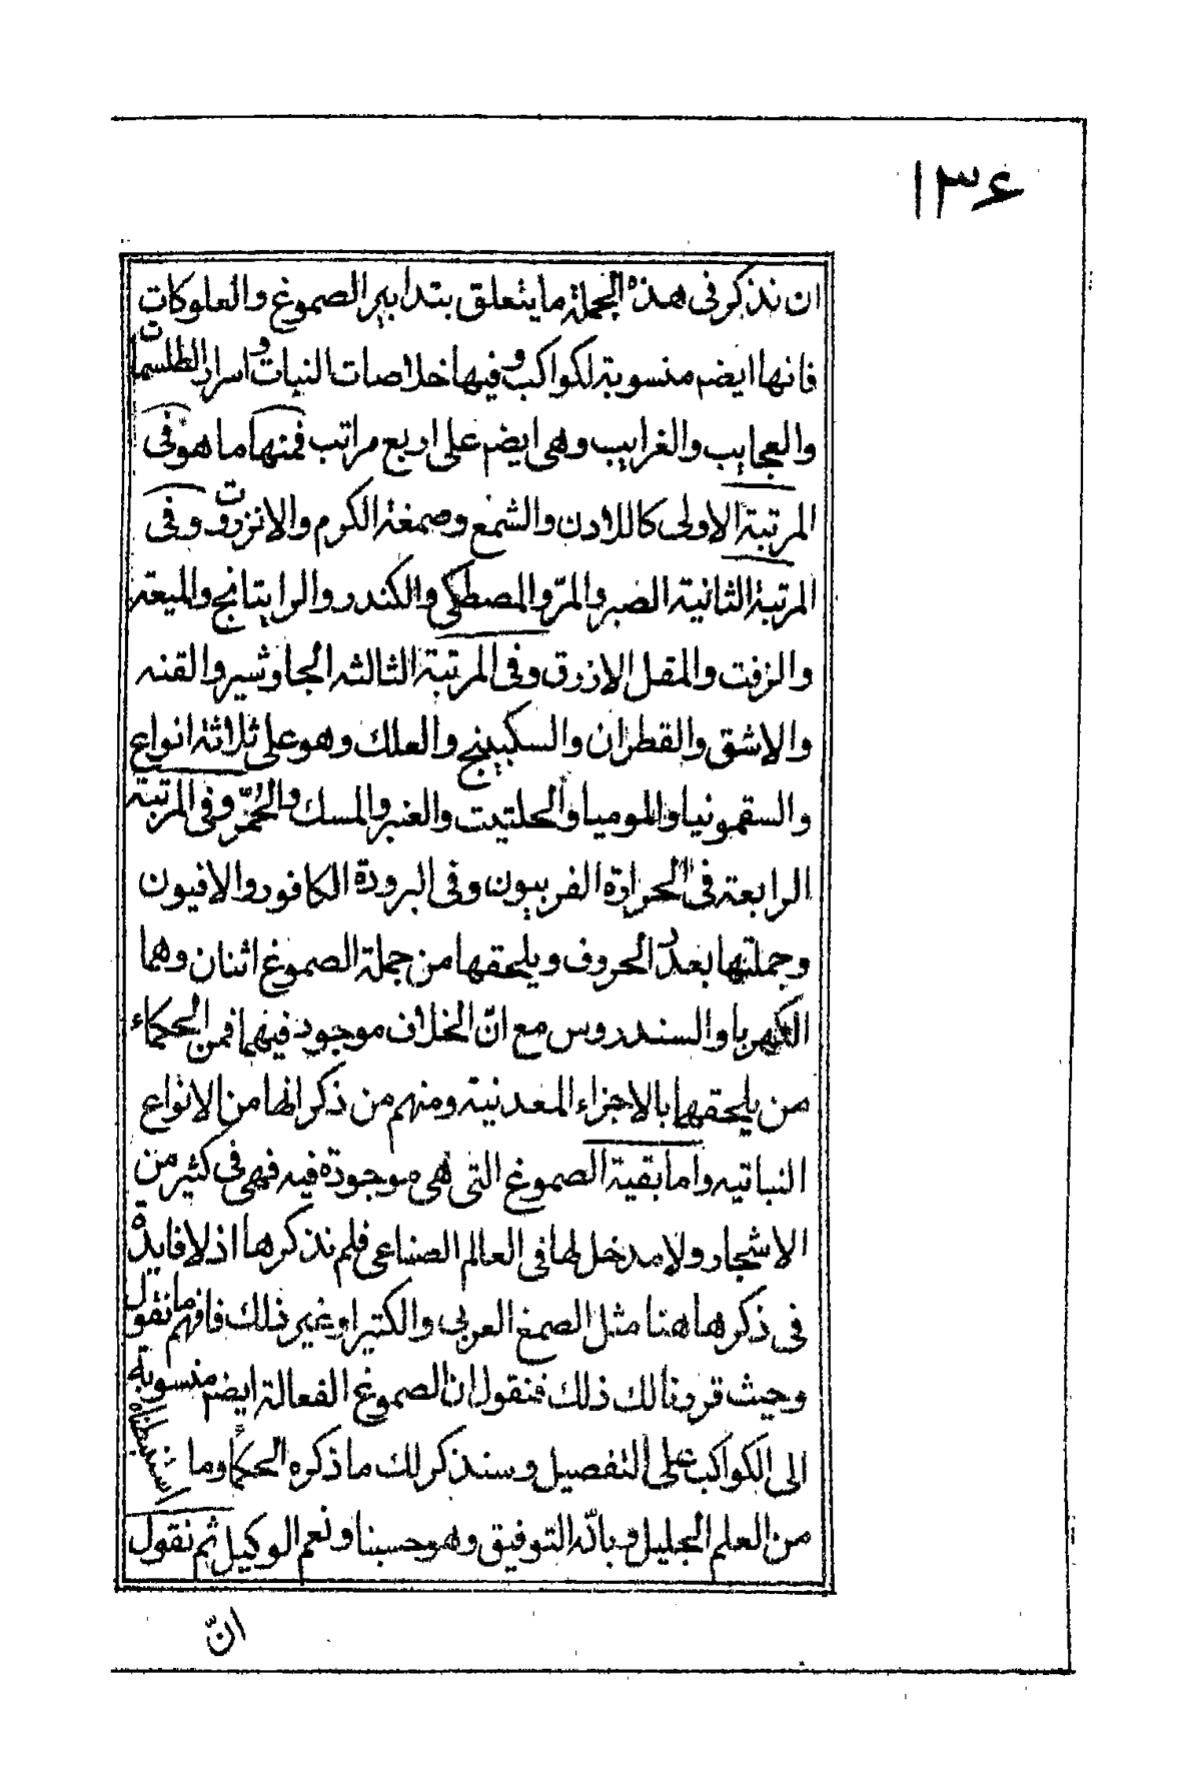 ١٣۶
ان نذكر فى هذه الجملة ما يتعلق بتدابير الصموغ والعلوكات
فانها ايضم منسوبة لكواكب وفيها خلاصات النبات واسرار الطلسمات
والعجايب والغرايب وهى ايضم على اربع مراتب فمنها ما هو فى
المرتبة الاولى كاللادن والشمع وصمغة الكرم والانزروت وفى
المرتبة الثانية الصبر والمرّ والمصطكى والكندر والراتيانج والميعة
والزفت والمقل الازرق وفى المرتبة الثالثه الجاوشير والقنه
والاشق والقطران والسكبينج والعلك وهو على ثلاثة انواع
والسقمونيا والموميا والحلتيت والعنبر والمسك وفى المرتبة
الرابعة فى الحرارة الفربيون وفى البرودة الكافور والافيون
وجملتها بعدد الحروف ويلحقها من جملة الصموغ اثنان وهما
الكهربا والسندروس مع انّ الخلاف موجود فيهما فمن الحكماء
من يلحقهما بالاجزاء المعدنية ومنهم من ذكر انها من الانواع
النباتيه واما بقية الصموغ التى هى موجودة فيه فهى فى كثير من
الاشجار ولا مدخل لها فى العالم الصناعى فلم نذكرها اذ لا فايدة
فى ذكرها هنا مثل الصمغ العربى والكتيرا وغير ذلك فافهم ما نقول
وحيث قررنا لك ذلك فنقول ان الصموغ الفعالة ايضم منسوبة
الى الكواكب على التفصيل وسنذكر لك ما ذكره الحكما وما استنبطناه
من العلم الجليل وبالله التوفيق وهو حسبنا ونعم الوكيل ثم نقول
انّ